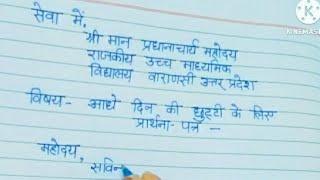 सेवा में,
श्री मान प्रधानाचार्य महोदय
राजकीय उच्च माध्यमिक
विद्यालय वाराणसी उत्तर प्रदेश
विषय- आधे दिन की छुट्टी के लिए
प्रार्थना-पत्र -
महोदय,
सविन
KINEMAS